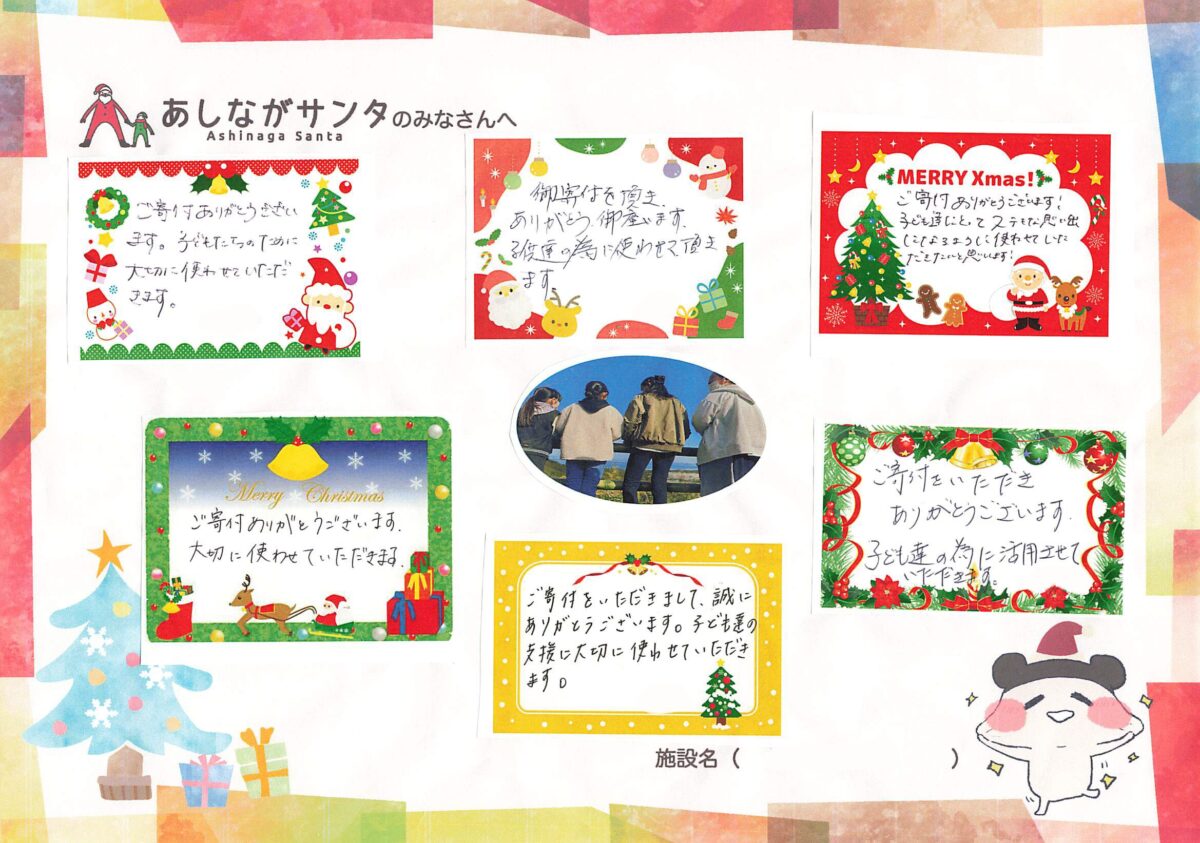 あしながサンタのみなさんへ
Ashinaga Santa
ご寄付ありがとうござい
ます。子どもたちのために
大切に使わせていただ
きます。
御寄付を頂き、
ありがとう御座います。
子供達の為に使わせて頂き
ます。
MERRY Xmas!
ご寄付ありがとうございます!
子ども達にとってステキな思い出
になるように使わせていた
だきたいと思います!
Merry Christmas
ご寄付ありがとうございます.
大切に使わせていただきます.
ご寄付をいただきまして、誠に
ありがとうございます。子ども達の
支援に大切に使わせていただき
ます。
ご寄付をいただき
ありがとうございます.
子ども達の為に活用させて
いただきます。
施設名( )